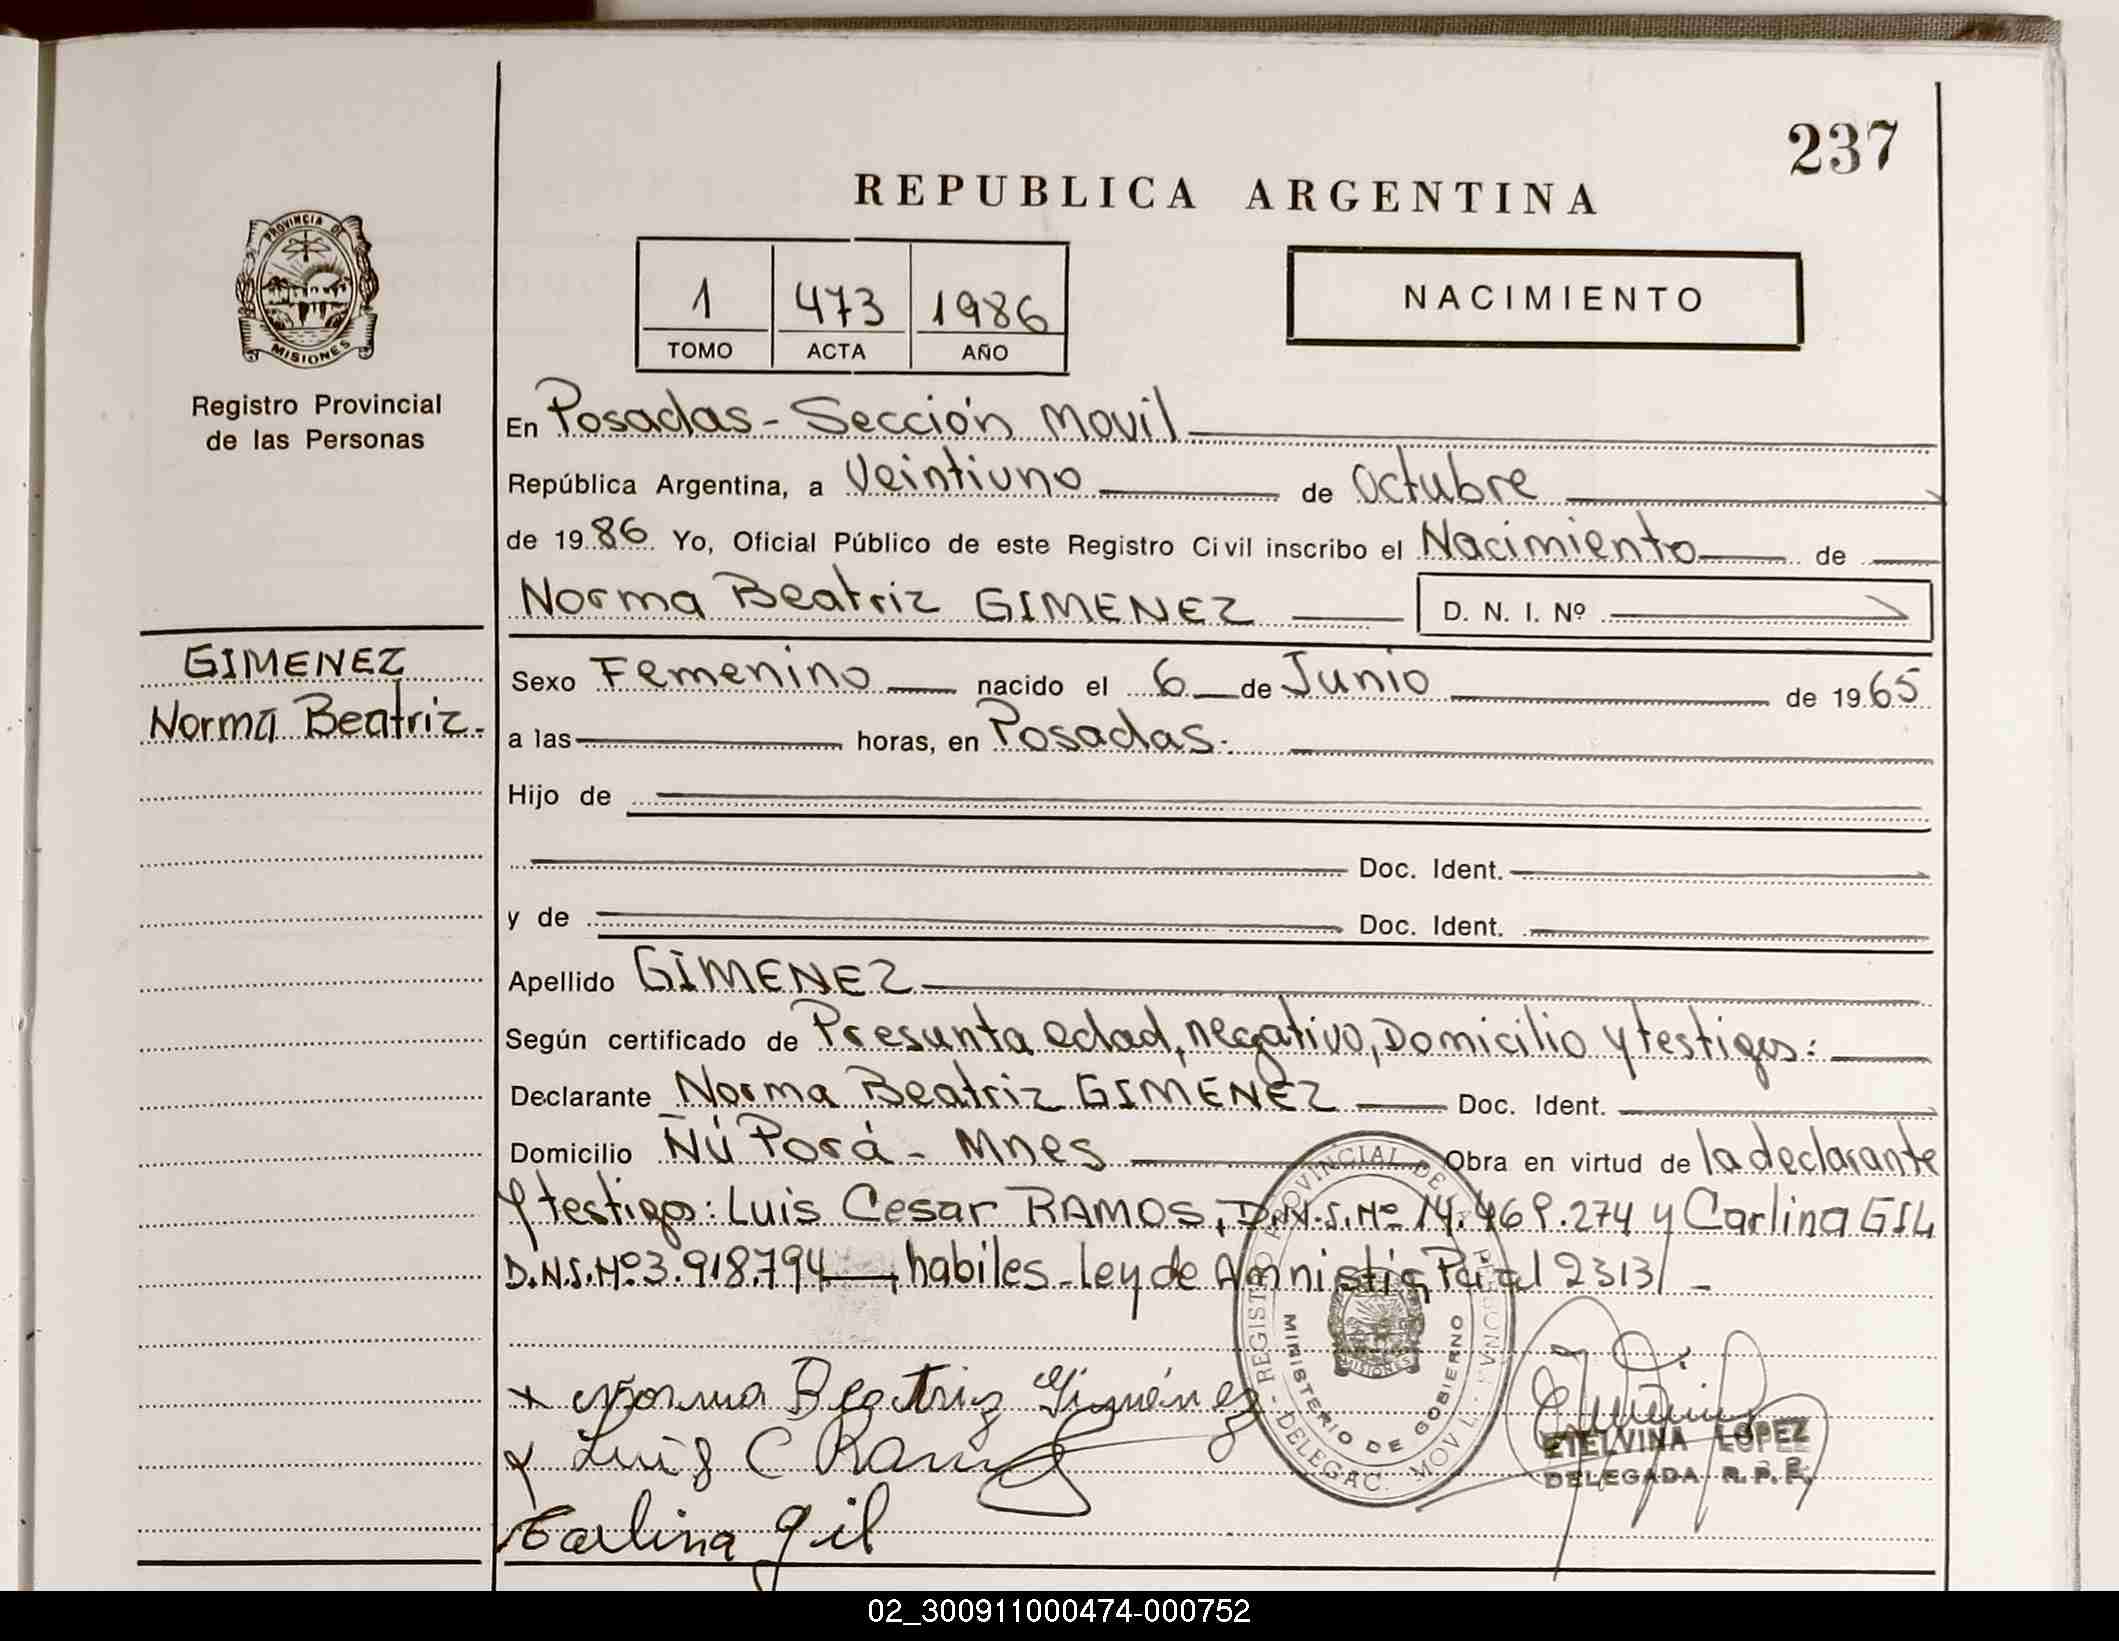 237
REPUBLICA ARGENTINA
PROVINCIA DE
MISIONES
1 473 1986
TOMO ACTA AÑO
NACIMIENTO
Registro Provincial
de las Personas
En Posadas - Sección Movil
República Argentina, a Veintiuno de Octubre
de 1986 Yo, Oficial Público de este Registro Civil inscribo el Nacimiento de
Norma Beatriz GIMENEZ D. N. I. Nº
GIMENEZ
Norma Beatriz.
Sexo Femenino nacido el 6 de Junio de 1965
a las horas, en Posadas.
Hijo de
Doc. Ident.
y de Doc. Ident.
Apellido GIMENEZ
Según certificado de Presunta edad, negativo, Domicilio y testigos:
Declarante Norma Beatriz GIMENEZ Doc. Ident.
Domicilio Ñú Porá - Mnes Obra en virtud de la declarante
y testigos: Luis Cesar RAMOS, D.N.I. Nº 14.469.274 y Carlina GIL
D.N.I. Nº 3.918.794, habiles - Ley de Amnistia 2313/ -
REGISTRO PROVINCIAL DE LAS PERSONAS - DELEGAC. MOVIL -
MINISTERIO DE GOBIERNO
MISIONES
x Norma Beatriz Giménez
x Luis C Ramos
Carlina Gil
ETELVINA LOPEZ
DELEGADA R. P. P.
02_300911000474-000752